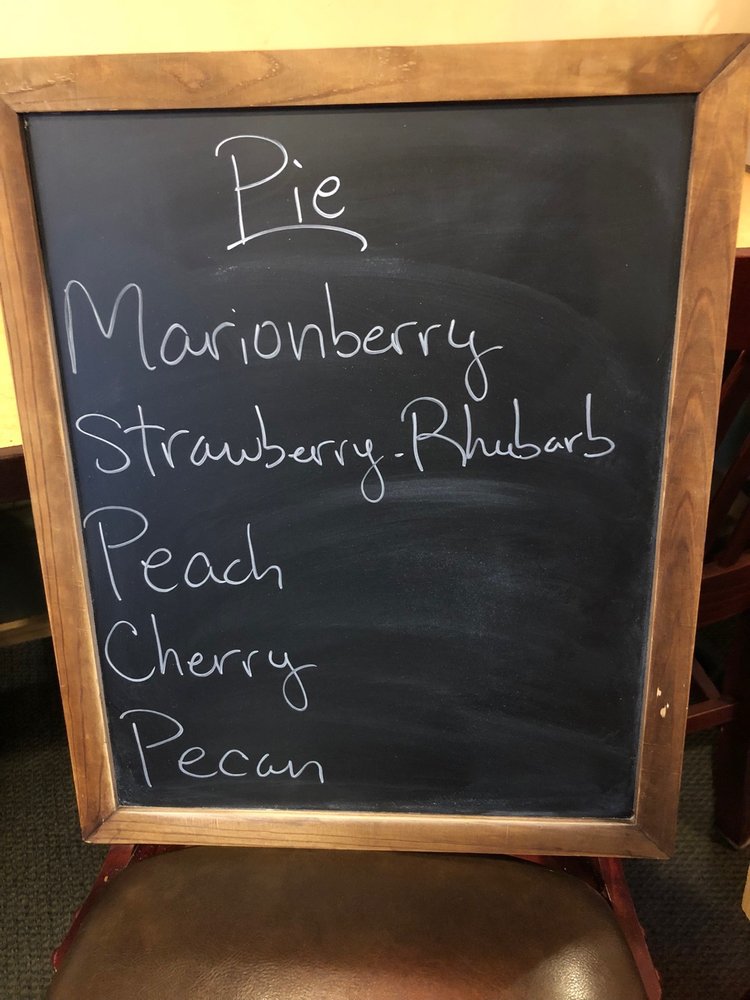 Pie
Marionberry
Strawberry-Rhubarb
Peach
Cherry
Pecan